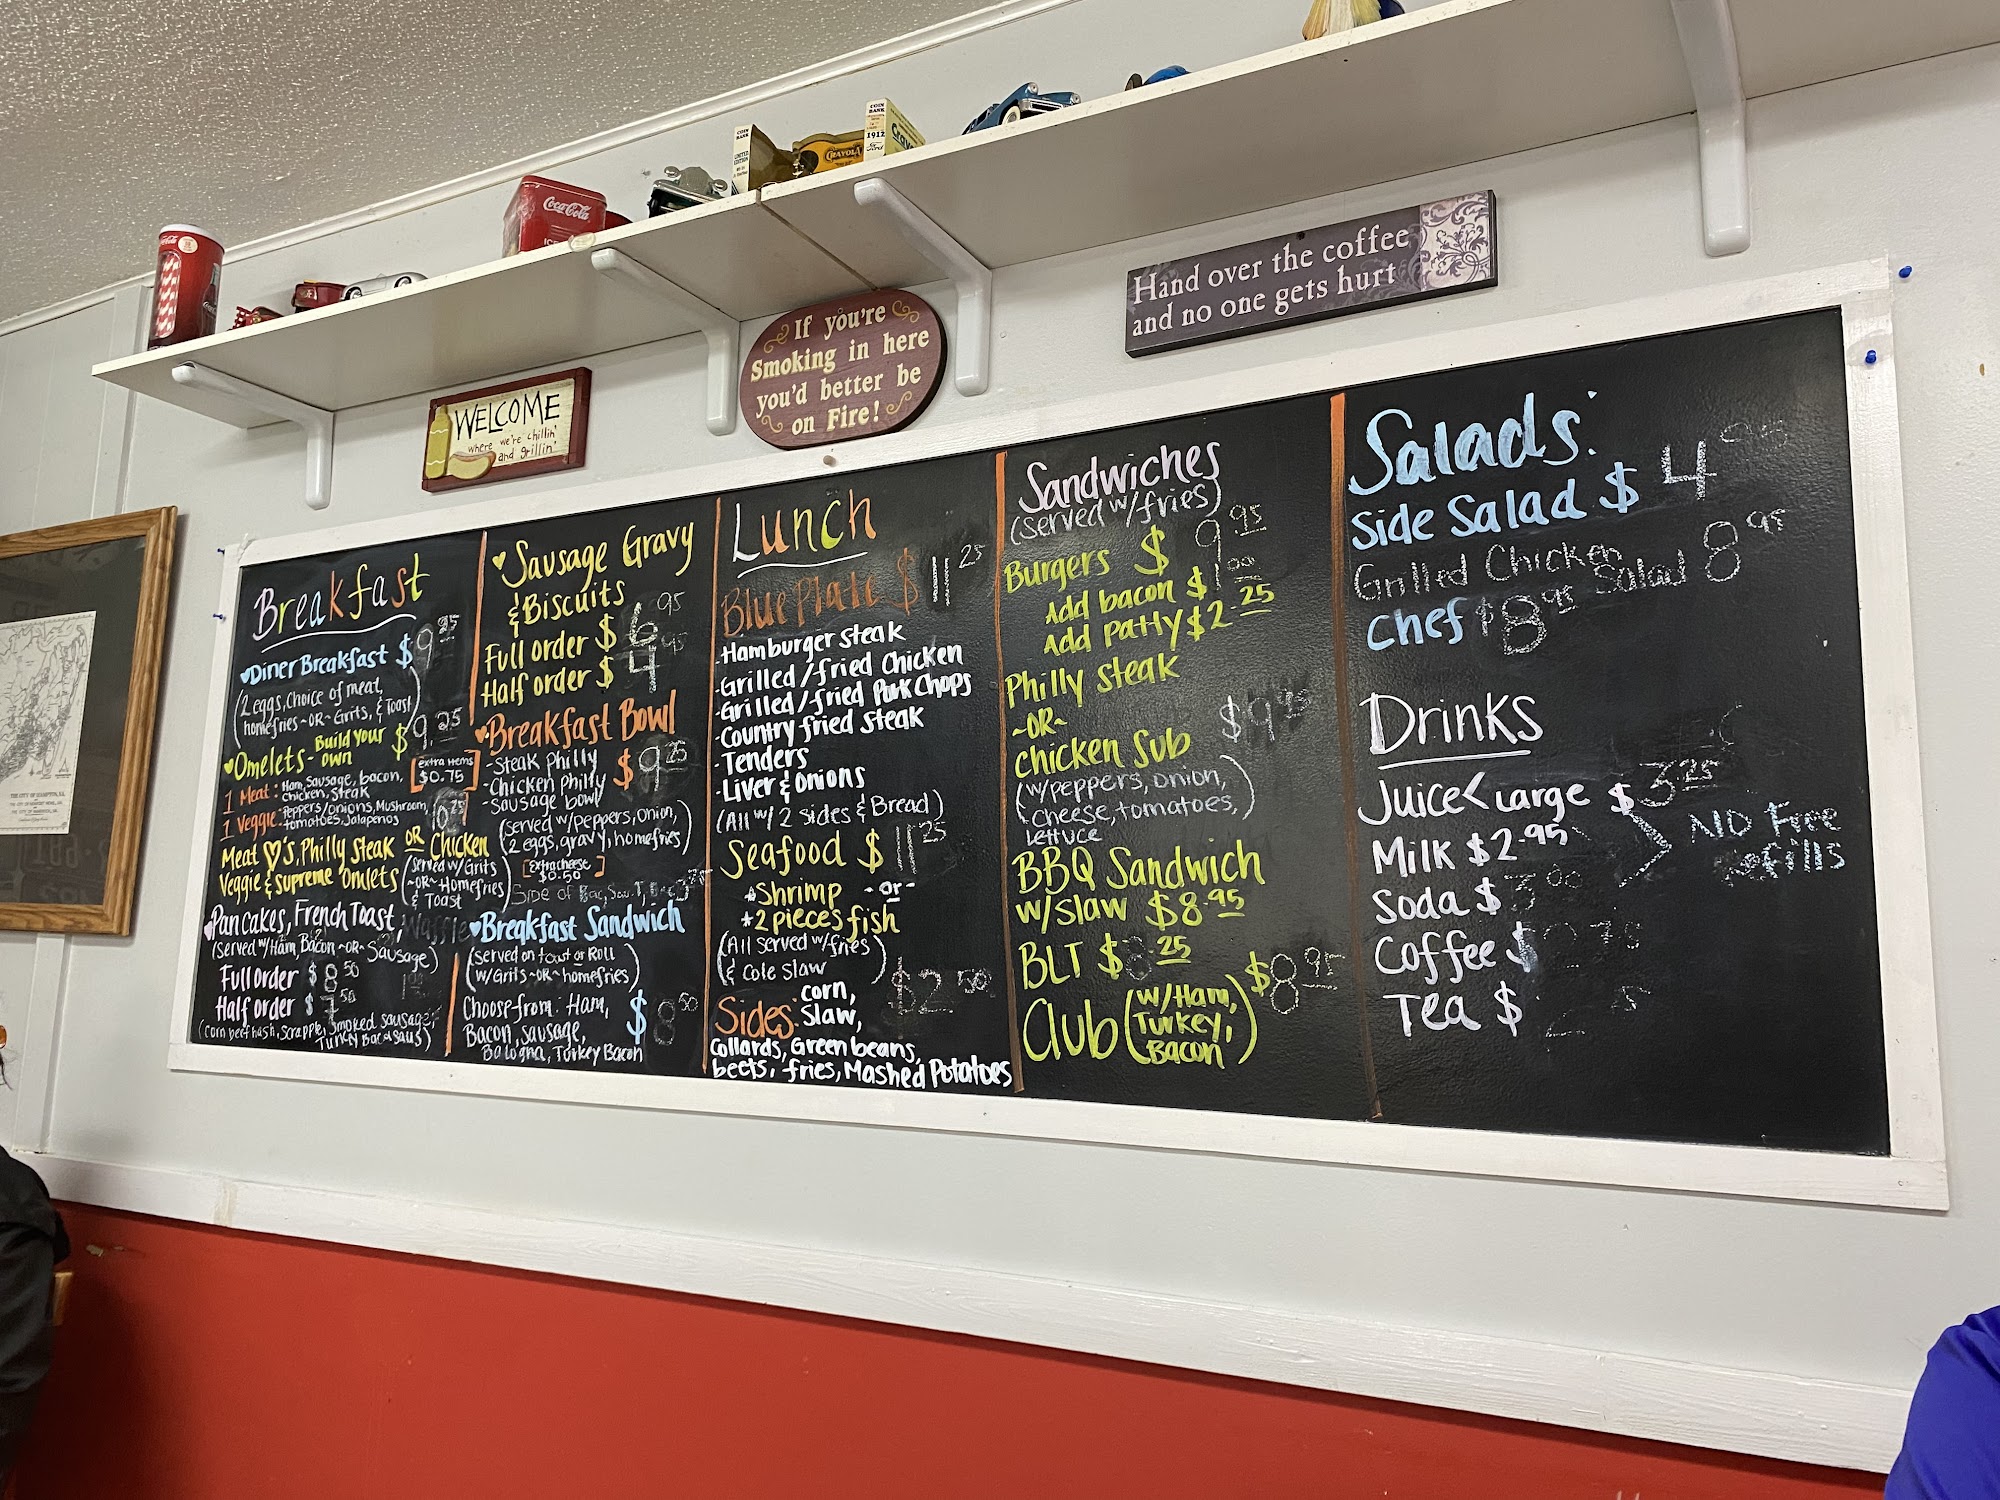 Coca-Cola
Coca-Cola
COIN
BANK
LIMITED
EDITION
CRAYOLA
COIN
BANK
1912
WELCOME
where we're chillin'
and grillin'
If you're
Smoking in here
you'd better be
on Fire!
Hand over the coffee
and no one gets hurt
Breakfast
Diner Breakfast $9.25
(2 eggs, choice of meat,
homefries ~OR~ Grits, & Toast)
Omelets - Build your own $9.25
[extra items $0.75]
1 Meat: Ham, Sausage, bacon,
chicken, steak
1 Veggie: Peppers/onions, Mushroom,
tomatoes, Jalapenos
Meat ♡'s, Philly Steak OR Chicken 10.25
Veggie & Supreme Omlets (served w/Grits
~OR~ Homefries)
& Toast
Pancakes, French Toast, Waffle
(served w/Ham, Bacon ~OR~ Sausage)
Full order $8.50
Half order $7.50
(corn beef hash, scrapple, smoked sausage,
Turkey Bac
Sausage Gravy
& Biscuits
Full order $6.95
Half order $4.95
Breakfast Bowl
-Steak Philly
-Chicken Philly $9.25
-Sausage bowl
(served w/Peppers, onion,
2 eggs, gravy, homefries)
[Extra cheese
$0.50]
Side of
Breakfast Sandwich
(served on toast or Roll
w/Grits ~OR~ homefries)
Choose from: Ham, $8.50
Bacon, Sausage,
Balogna, Turkey Bacon
Lunch
Blue Plate $11.25
-Hamburger steak
-Grilled/fried Chicken
-Grilled/fried Pork Chops
-Country fried Steak
-Tenders
-Liver & Onions
(All w/ 2 sides & Bread)
Seafood $11.25
*Shrimp -or-
*2 pieces fish
(All served w/fries
& Cole Slaw)
Sides: corn, $2.50
Slaw,
Collards, Green beans,
beets, fries, Mashed Potatoes
Sandwiches
(served w/fries)
Burgers $9.95
Add bacon $1.00
Add Patty $2.25
Philly Steak
~OR~ $9.95
Chicken Sub
(w/peppers, onion,
cheese, tomatoes,
lettuce)
BBQ Sandwich
w/slaw $8.95
BLT $8.25
Club (w/Ham, $8.95
Turkey,
Bacon)
Salads:
Side Salad $4.95
Grilled Chicken Salad 8.95
Chef $8.95
Drinks
Juice<Large $3.25
Milk $2.95
NO Free
refills
Soda $3.00
Coffee $
Tea $